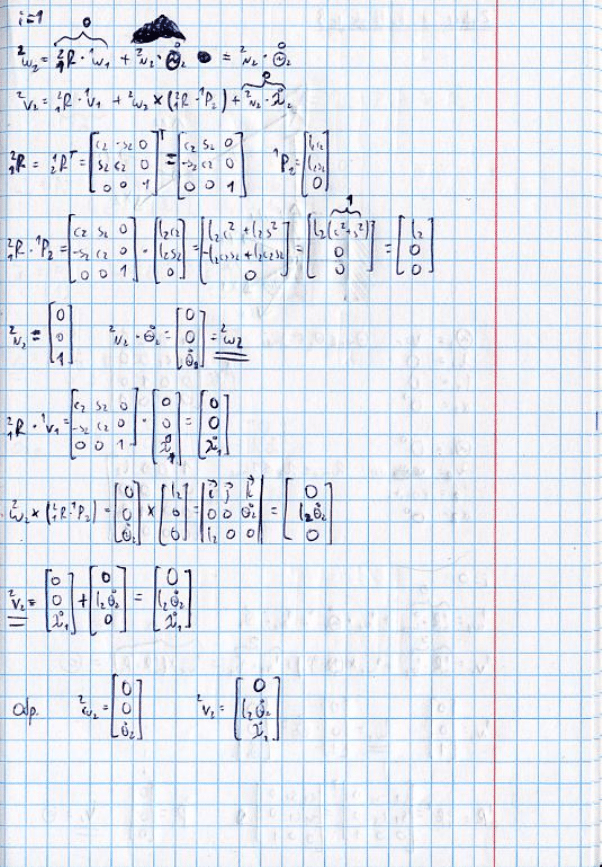 i=1
²ω₂ = ²₁R · ¹ω₁ + ²N₂ · Θ̇₂ = ²N₂ · Θ̇₂
0
²v₂ = ²₁R · ¹v₁ + ²ω₂ × (²₁R · ¹P₂) + ²N₂ · λ̇₂
0
²₁R = ¹₂Rᵀ = [c₂ -s₂ 0; s₂ c₂ 0; 0 0 1]ᵀ = [c₂ s₂ 0; -s₂ c₂ 0; 0 0 1] ¹P₂ = [l₂c₂; l₂s₂; 0]
²₁R · ¹P₂ = [c₂ s₂ 0; -s₂ c₂ 0; 0 0 1] · [l₂c₂; l₂s₂; 0] = [l₂c² + l₂s²; -l₂c₂s₂ + l₂c₂s₂; 0] = [l₂(c²+s²); 0; 0] = [l₂; 0; 0]
1
²N₂ = [0; 0; 1] ²N₂ · Θ̇₂ = [0; 0; Θ̇₂] = ²ω₂
²₁R · ¹v₁ = [c₂ s₂ 0; -s₂ c₂ 0; 0 0 1] · [0; 0; λ̇₁] = [0; 0; λ̇₁]
²ω₂ × (²₁R · ¹P₂) = [0; 0; Θ̇₂] × [l₂; 0; 0] = |i⃗ j⃗ k⃗; 0 0 Θ̇₂; l₂ 0 0| = [0; l₂Θ̇₂; 0]
²v₂ = [0; 0; λ̇₁] + [0; l₂Θ̇₂; 0] = [0; l₂Θ̇₂; λ̇₁]
Odp. ²ω₂ = [0; 0; Θ̇₂] ²v₂ = [0; l₂Θ̇₂; λ̇₁]